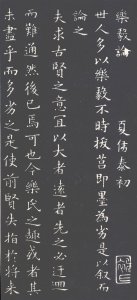 樂毅論
夏侯泰初
世人多以樂毅不時拔莒即墨為劣是以叙而
論之
夫求古賢之意宜以大者遠者先之必迂迴
而難通然後已焉可也今樂氏之趣或者其
未盡乎而多劣之是使前賢失指於將來